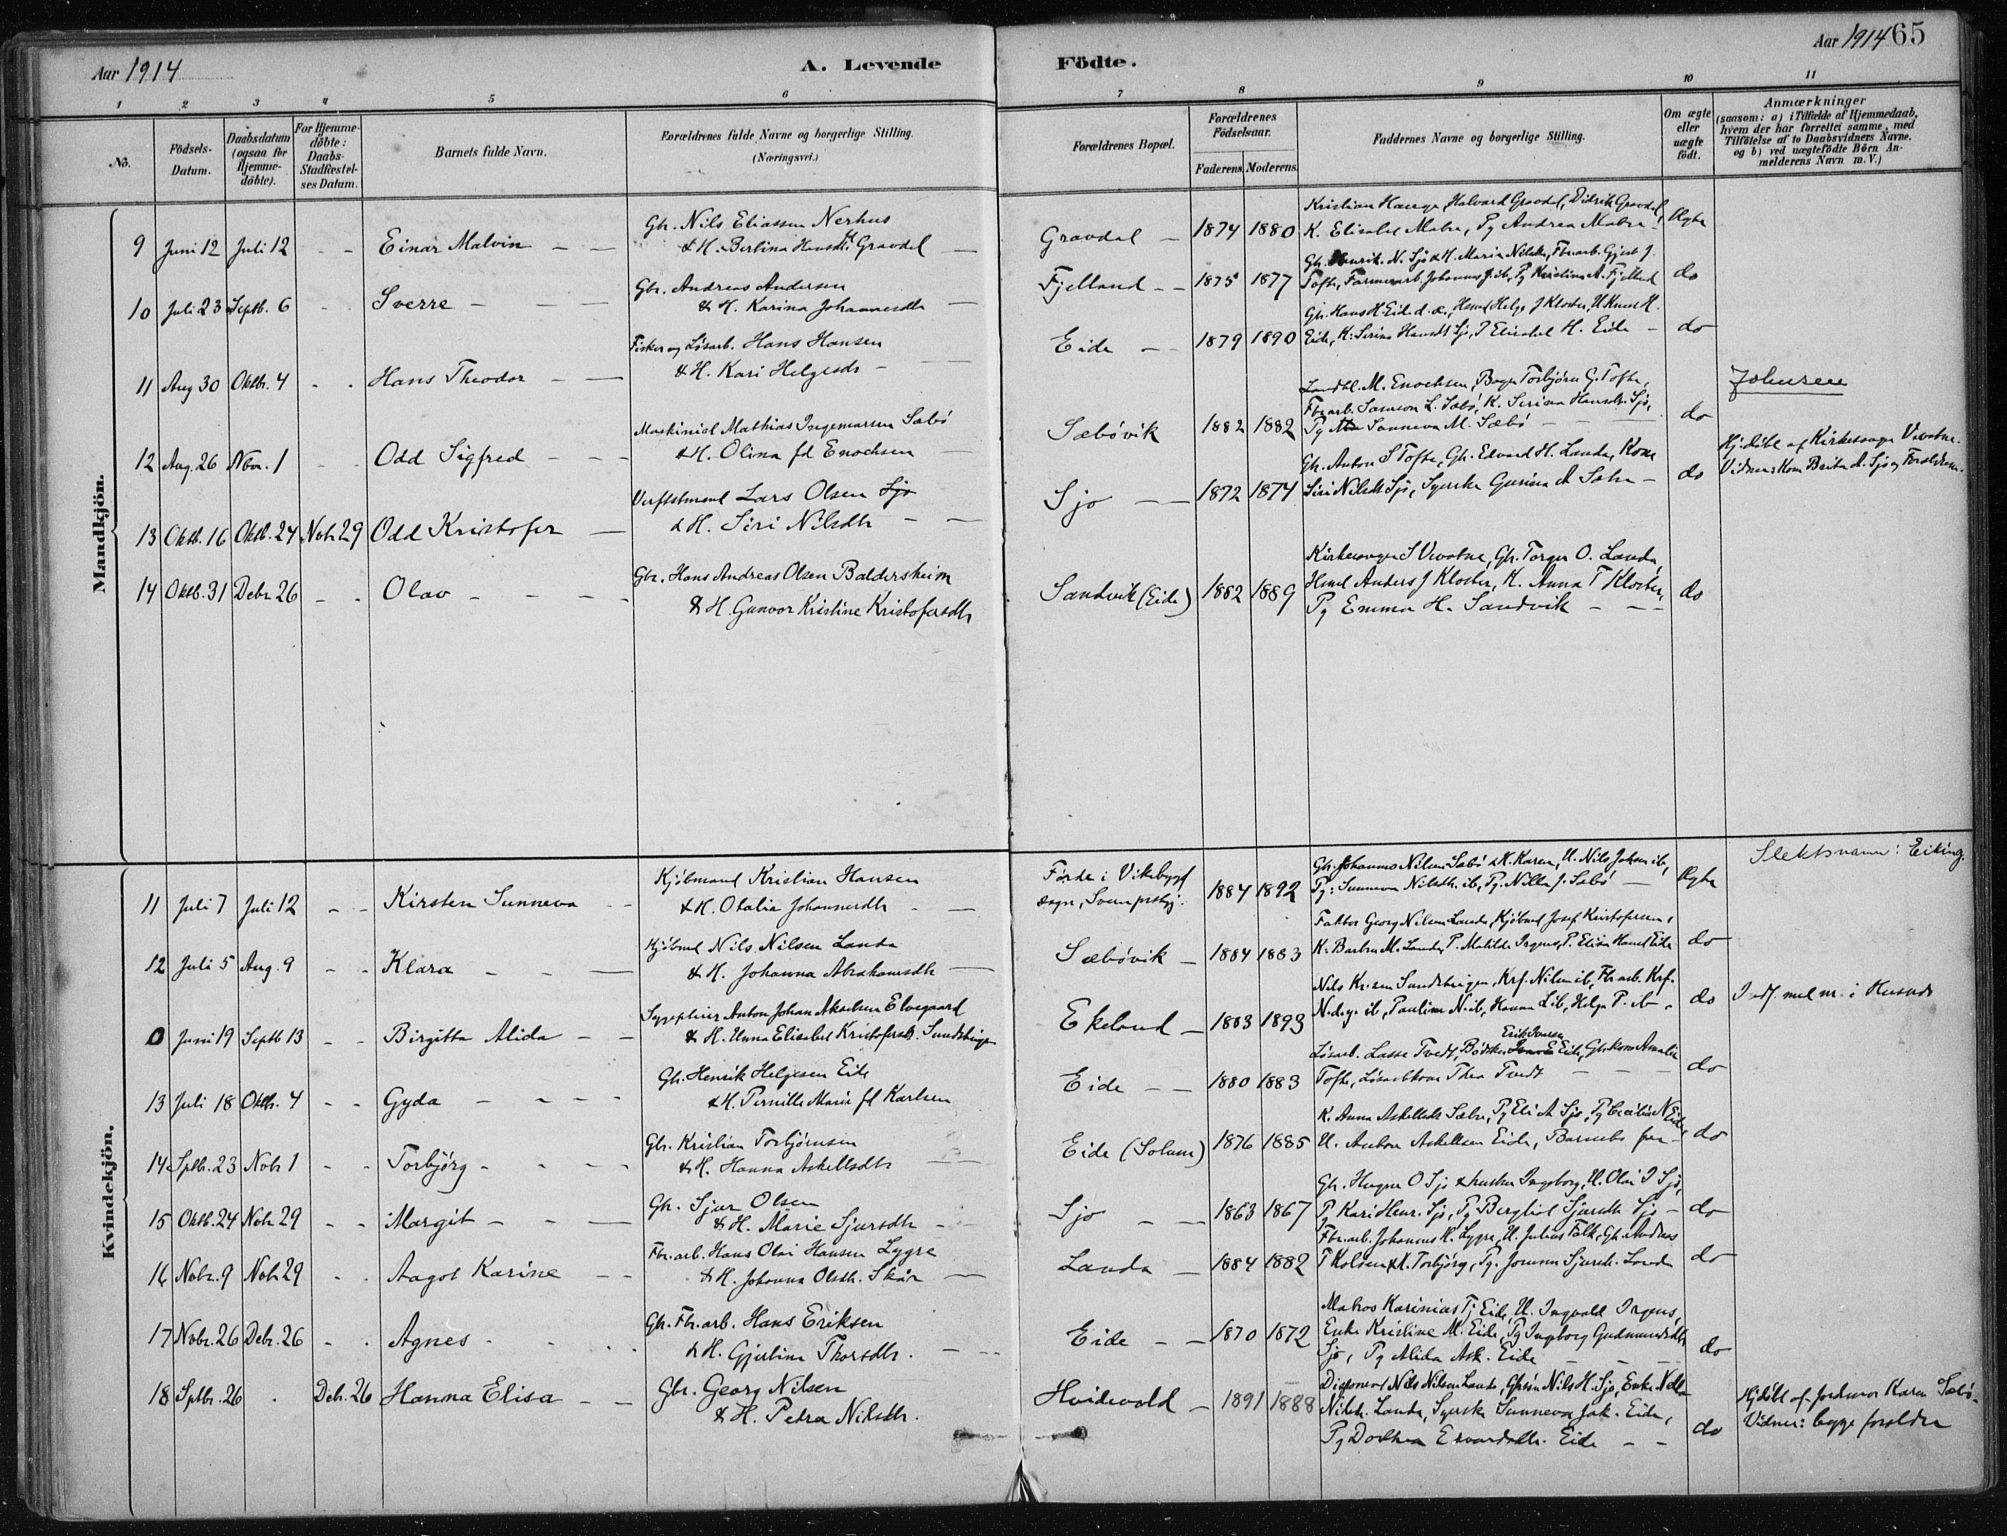 Aar 1914
A. Levende
Födte.
Aar 1914
65
1 2 3 4 5 6 7 8 9 10 11
No.
Födsels-
Datum.
Daabsdatum
(ogsaa for
Hjemme-
döbte).
For Hjemme-
döbte:
Daabs-
Stadfæstel-
ses Datum.
Barnets fulde Navn.
Forældrenes fulde Navne og borgerlige Stilling.
(Næringsvei.)
Forældrenes Bopæl.
Forældrenes
Födselsaar.
Faderens. Moderens.
Faddernes Navne og borgerlige Stilling.
Om ægte
eller
uægte
födt.
Anmærkninger
(saasom: a) i Tilfælde af Hjemmedaab,
hvem der har forrettet samme, med
Tilföielse af to Daabsvidners Navne.
og b) ved uægtefödte Börn An-
melderens Navn m. V.)
Mandkjön.
9 Juni 12 Juli 12 Einar Malvin
Gbr. Nils Eliassen Nerhus
& H. Berlina Hansdtr Gravdal
Gravdal 1874 1880
Kristian Hauge, Halvard Gravdal, Didrik Gravdal,
K. Elisabet Mabre, Pg Andrea Mabre
Ægte
10 Juli 23 Septb. 6 Sverre
Gbr. Andreas Andersen
& H. Karina Johannesdtr
Fjelland 1875 1877
Gbr. Henrik N. Sjo & H. Maria Nilsdtr, Fbrarb. Gjert J.
Tofte, Farmerarb Johannes J. ib, Pg Kristina A. Fjelland
do
11 Aug 30 Oktb. 4 Hans Theodor
Fisker og Løsarb. Hans Hansen
& H. Kari Helgesdr
Eide 1879 1890
Gbr. Hans H. Eide d. æ., Helge J Kloster, U Knut H.
Eide, K. Serina Hansdtr Sjo, P Elisabet H. Eide
do
Johnsen
12 Aug. 26 Nbr. 1 Odd Sigfred
Maskinist Mathias Ingemarsen Sæbö
& H. Olina fd Enochsen
Sæbövik 1882 1882
Landhl. M. Enochsen, Bager Torbjörn G. Tofte,
Fbrarb. Samson L. Sæbö, K. Serina Hansdtr. Sjo,
Pg Sunneva M. Sæbö
do
13 Oktb. 16 Oktb. 24 Nobr 29 Odd Kristofer
Verftstmand Lars Olsen Sjo
& H. Siri Nilsdtr
Sjo 1872 1874
Gbr. Anton S Tofte, Gbr. Edvard H. Landa, Kone
Siri Nilsdtr Sjo, Syerske Gurina A
do
Hjdöbt af Kirkesanger Vevatne.
Vidner: Kone Brita A. Sjo og Forældrene.
14 Oktb. 31 Debr 26 Olav
Gbr. Hans Andreas Olsen Baldersheim
& H. Gunvor Kristine Kristofersdtr
Sandvik (Eide) 1882 1889
Kirkesanger S Vevatne, Gbr. Torger O. Landa,
Anders J Kloster, K. Anna T Kloster,
Pg Emma H. Sandvik
do
Kvindekjön.
11 Juli 7 Juli 12 Kirsten Sunneva
Kjöbmand Kristian Hansen
& H. Otalia Johannesdtr
Førde i Vikebygd
sogn, Sveen prstgj. 1884 1892
Gbr. Johannes Nilsen Sæbö & K. Karen, U. Nils Johsen ib,
Pg. Sunneva Nilsdtr. ib, Pg. Nilla J. Sæbö
Ægte
Slektsnavn: Eiking.
12 Juli 5 Aug. 9 Klara
Kjöbmd Nils Nilsen Landa
& H. Johanna Abrahamsdtr
Sæbövik 1884 1883
Faktor Georg Nilsen Landa, Kjöbmd Josef Kristofersen,
K. Barbra M. Landa, P. Matilde Irgens, P. Elisa Hansd Eide
do
0 Juni 19 Septb 13 Birgitta Alida
Anton Johan Akselsen Elvegaard
& H. Anna Elisabet Kristofersdtr. Sundsteigen
Ekeland 1883 1893
Nils Kr.sen Sundsteigen, Krf. Nilsen ib, Fbrarb. Krf.
ib, Pauline N. ib, Hanna L ib, Helga P. ib
do
Indf. med nr. i Husnes
13 Juli 18 Oktb. 4 Gyda
Gbr. Henrik Helgesen Eide
& H. Pernille Marie fd Karlsen
Eide 1880 1883
Løsarb. Lasse Tvedt, Bödker Erik Ivarsen Eide, Gbrkone Amalie
Tofte, Løsarbkone Thea Tvedt
do
14 Sptb. 23 Nobr 1 Torbjörg
Gbr. Kristian Torbjörnsen
& H. Hanna Askellsdtr
Eide (Solem) 1876 1885
K. Anna Askellsdtr Sæbö, Pg Eli A Sjo, Pg Cecilia N Eide,
U. Anton Askellsen Eide, Barnets far
do
15 Oktb. 24 Nobr 29 Margit
Gbr. Sjur Olsen
& H. Marie Sjursdtr
Sjo 1863 1867
Gbr. Hagne O Sjo & hustru Ingeborg, U. Olai I Sjo,
P. Kari Henr. Sjo, Pg Bergliot Sjursdtr Sjo
do
16 Nobr. 9 Nobr 29 Aagot Karine
Fbr.arb. Hans Olai Hansen Lygre
& H. Johanna Olsdtr. Skår
Landa 1884 1882
Fbr.arb. Johannes H. Lygre, U. Julius Falk, Gbr. Andreas
T Kolsen & K. Torbjörg, Pg. Sjursdtr. Landa
do
17 Nobr. 26 Debr. 26 Agnes
Gbr. Fbr.arb. Hans Eriksen
& H. Gjertina Thorsdtr.
Eide 1870 1872
Matros Karinius Tj Eide, U. Ingvald Irgens,
Enke Kristine M. Eide, Pg Ingborg Gudmundsdtr
Sjo, Pg Alida Ask. Eide
do
18 Sptbr. 26 Debr. 26 Hanna Elisa
Gbr. Georg Nilsen
& H. Petra Nilsdtr.
Hvidevold 1891 1888
Nils Nilsen Landa, Nils H. Sjo, Enke Nilla
Nilsdtr. Landa, Syerske Sunneva Joh. Eide,
Pg Dorthea Edvardsdtr. Eide
do
Hjdöbt af jordmor Karen Sæbö.
Vidner: begge foreldre